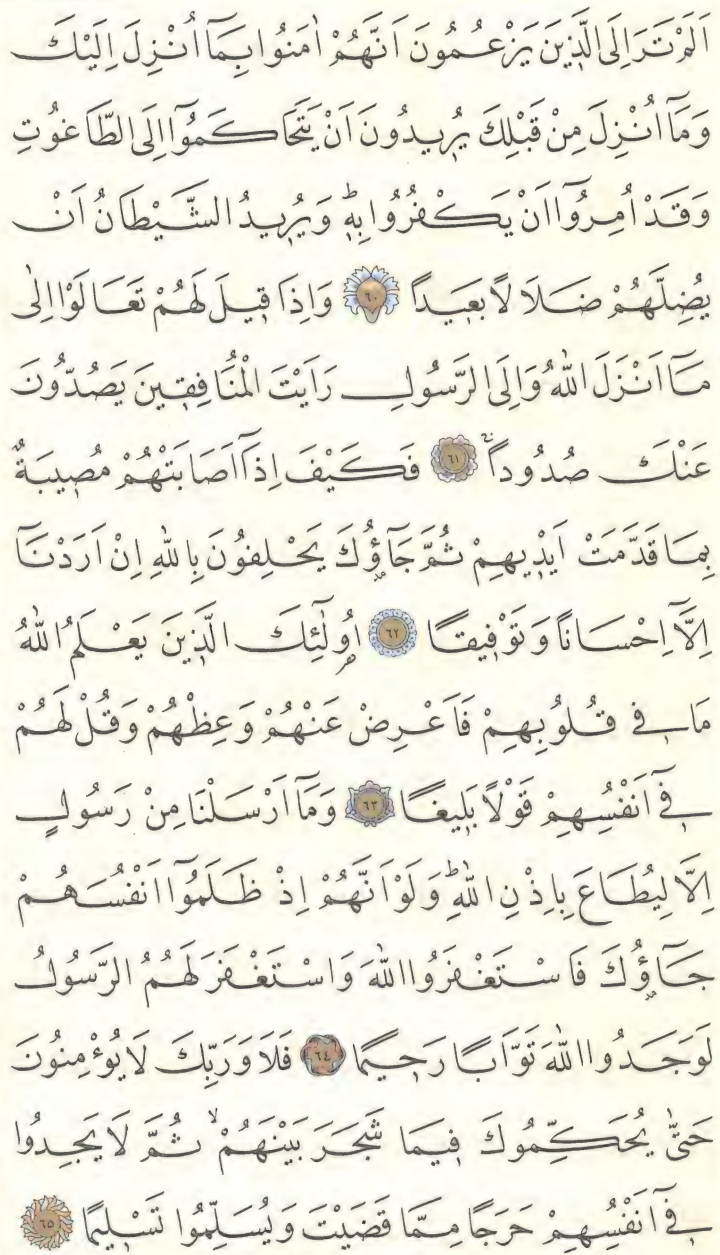 اَلَمْ تَرَ اِلَى الَّذٖينَ يَزْعُمُونَ اَنَّهُمْ اٰمَنُوا بِمَٓا اُنْزِلَ اِلَيْكَ
وَمَٓا اُنْزِلَ مِنْ قَبْلِكَ يُرٖيدُونَ اَنْ يَتَحَاكَمُٓوا اِلَى الطَّاغُوتِ
وَقَدْ اُمِرُٓوا اَنْ يَكْفُرُوا بِهٖؕ وَيُرٖيدُ الشَّيْطَانُ اَنْ
يُضِلَّهُمْ ضَلَالًا بَعٖيداً ٦٠ وَاِذَا قٖيلَ لَهُمْ تَعَالَوْا اِلٰى
مَٓا اَنْزَلَ اللّٰهُ وَاِلَى الرَّسُولِ رَاَيْتَ الْمُنَافِقٖينَ يَصُدُّونَ
عَنْكَ صُدُوداًۚ ٦١ فَكَيْفَ اِذَٓا اَصَابَتْهُمْ مُصٖيبَةٌ
بِمَا قَدَّمَتْ اَيْدٖيهِمْ ثُمَّ جَٓاؤُ۫كَ يَحْلِفُونَ بِاللّٰهِ اِنْ اَرَدْنَٓا
اِلَّٓا اِحْسَاناً وَتَوْفٖيقاً ٦٢ اُو۬لٰٓئِكَ الَّذٖينَ يَعْلَمُ اللّٰهُ
مَا فٖى قُلُوبِهِمْ فَاَعْرِضْ عَنْهُمْ وَعِظْهُمْ وَقُلْ لَهُمْ
فٖٓى اَنْفُسِهِمْ قَوْلاً بَلٖيغاً ٦٣ وَمَٓا اَرْسَلْنَا مِنْ رَسُولٍ
اِلَّا لِيُطَاعَ بِاِذْنِ اللّٰهِؕ وَلَوْ اَنَّهُمْ اِذْ ظَلَمُٓوا اَنْفُسَهُمْ
جَٓاؤُ۫كَ فَاسْتَغْفَرُوا اللّٰهَ وَاسْتَغْفَرَ لَهُمُ الرَّسُولُ
لَوَجَدُوا اللّٰهَ تَوَّاباً رَحٖيماً ٦٤ فَلَا وَرَبِّكَ لَا يُؤْمِنُونَ
حَتّٰى يُحَكِّمُوكَ فٖيمَا شَجَرَ بَيْنَهُمْۙ ثُمَّ لَا يَجِدُوا
فٖٓى اَنْفُسِهِمْ حَرَجاً مِمَّا قَضَيْتَ وَيُسَلِّمُوا تَسْلٖيماً ٦٥